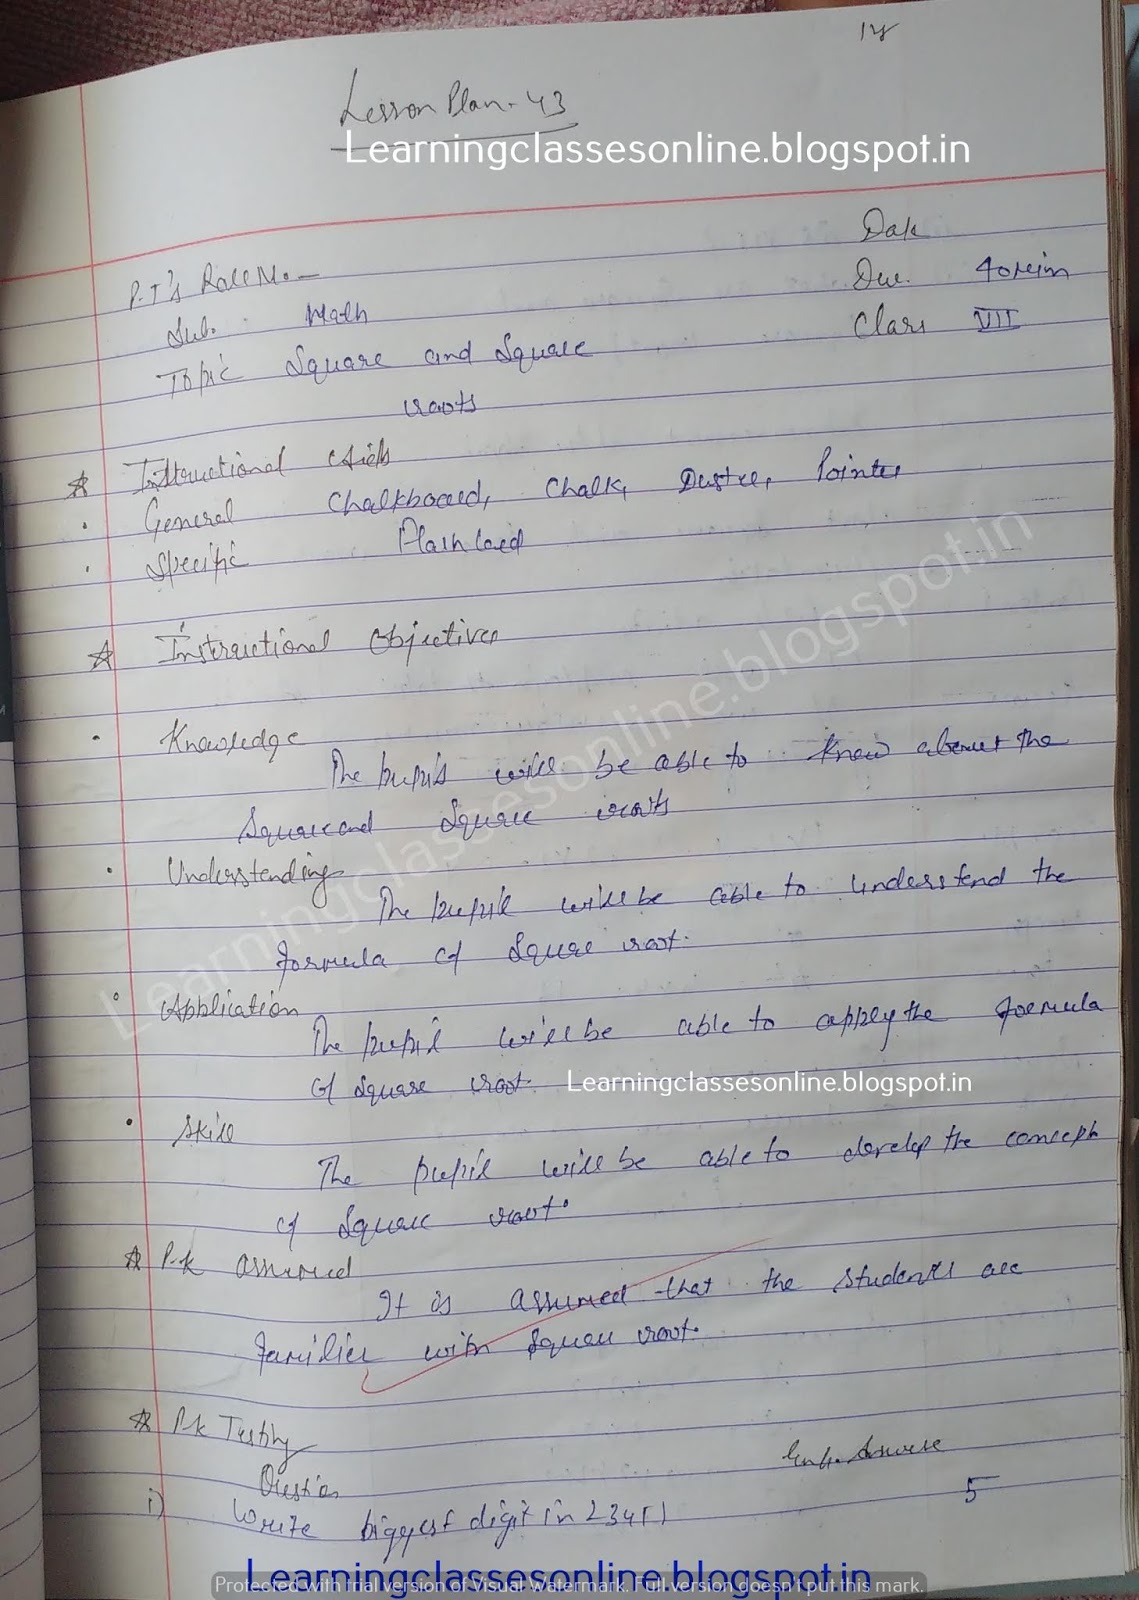 Lesson Plan-43
Learningclassesonline.blogspot.in
Date
P.T's Roll No. -
Dur. 40 min
Sub. Math
Class VII
Topic Square and Square
roots
Instructional Aids
General Chalkboard, Chalk, Duster, Pointer
Specific Flash Card
Instructional Objectives
Knowledge
The pupils will be able to know about the
Square and Square roots
Understanding
The pupil will be able to understand the
formula of Square root.
Application
The pupil will be able to apply the formula
of Square root.
Learningclassesonline.blogspot.in
Skill
The pupil will be able to develop the concept
of Square root.
P.k assumed
It is assumed that the students are
familier with Square root.
P.k Testing
Question
Exp. Answere
i) Write biggest digit in 23451
5
Learningclassesonline.blogspot.in
Protected with trial version of Visual Watermark. Full version doesn't put this mark.
Learningclassesonline.blogspot.in